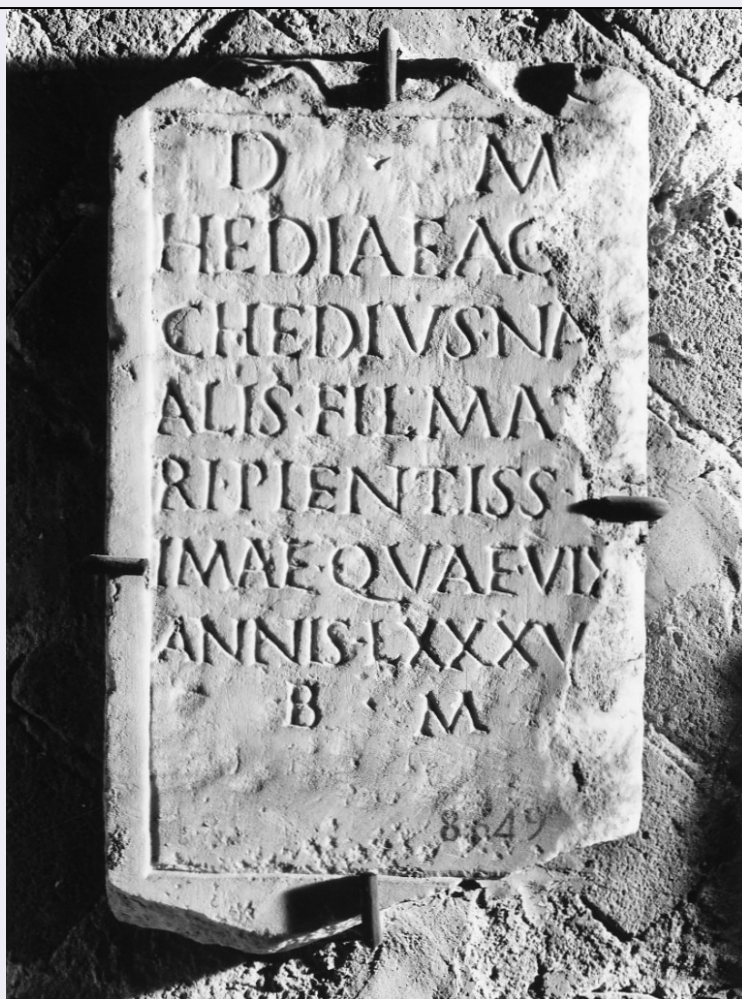 D · M
HEDIAE AC
C HEDIVS · NA
ALIS · FIL · MA
RI · PIENTISS
IMAE · QVAE · VIX
ANNIS · LXXXV
B · M